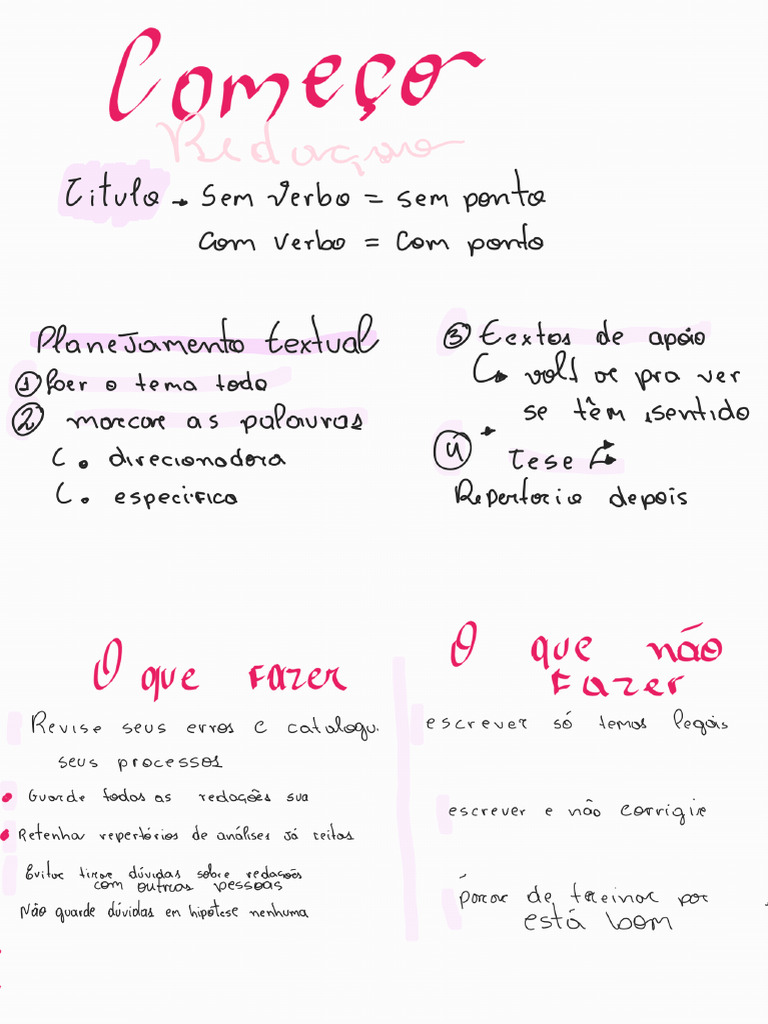 Começo
Redação
Titulo → Sem verbo = sem ponto
com verbo = com ponto
Planejamento textual
① ler o tema todo
② marcar as palavras
• direcionadora
• especifica
③ textos de apoio
pra ver
se têm sentido
④ Tese
Repertorio depois
O que fazer
Revise seus erros e catalogu.
seus processos
• Guarde todas as redações sua
• Retenha repertórios de análises já
Evitar tirar dúvidas sobre redações
com outras pessoas
Não guarde dúvidas en hipótese nenhuma
O que não
fazer
escrever só temas legais
escrever e não corrigir
parar de treinar por
está bom